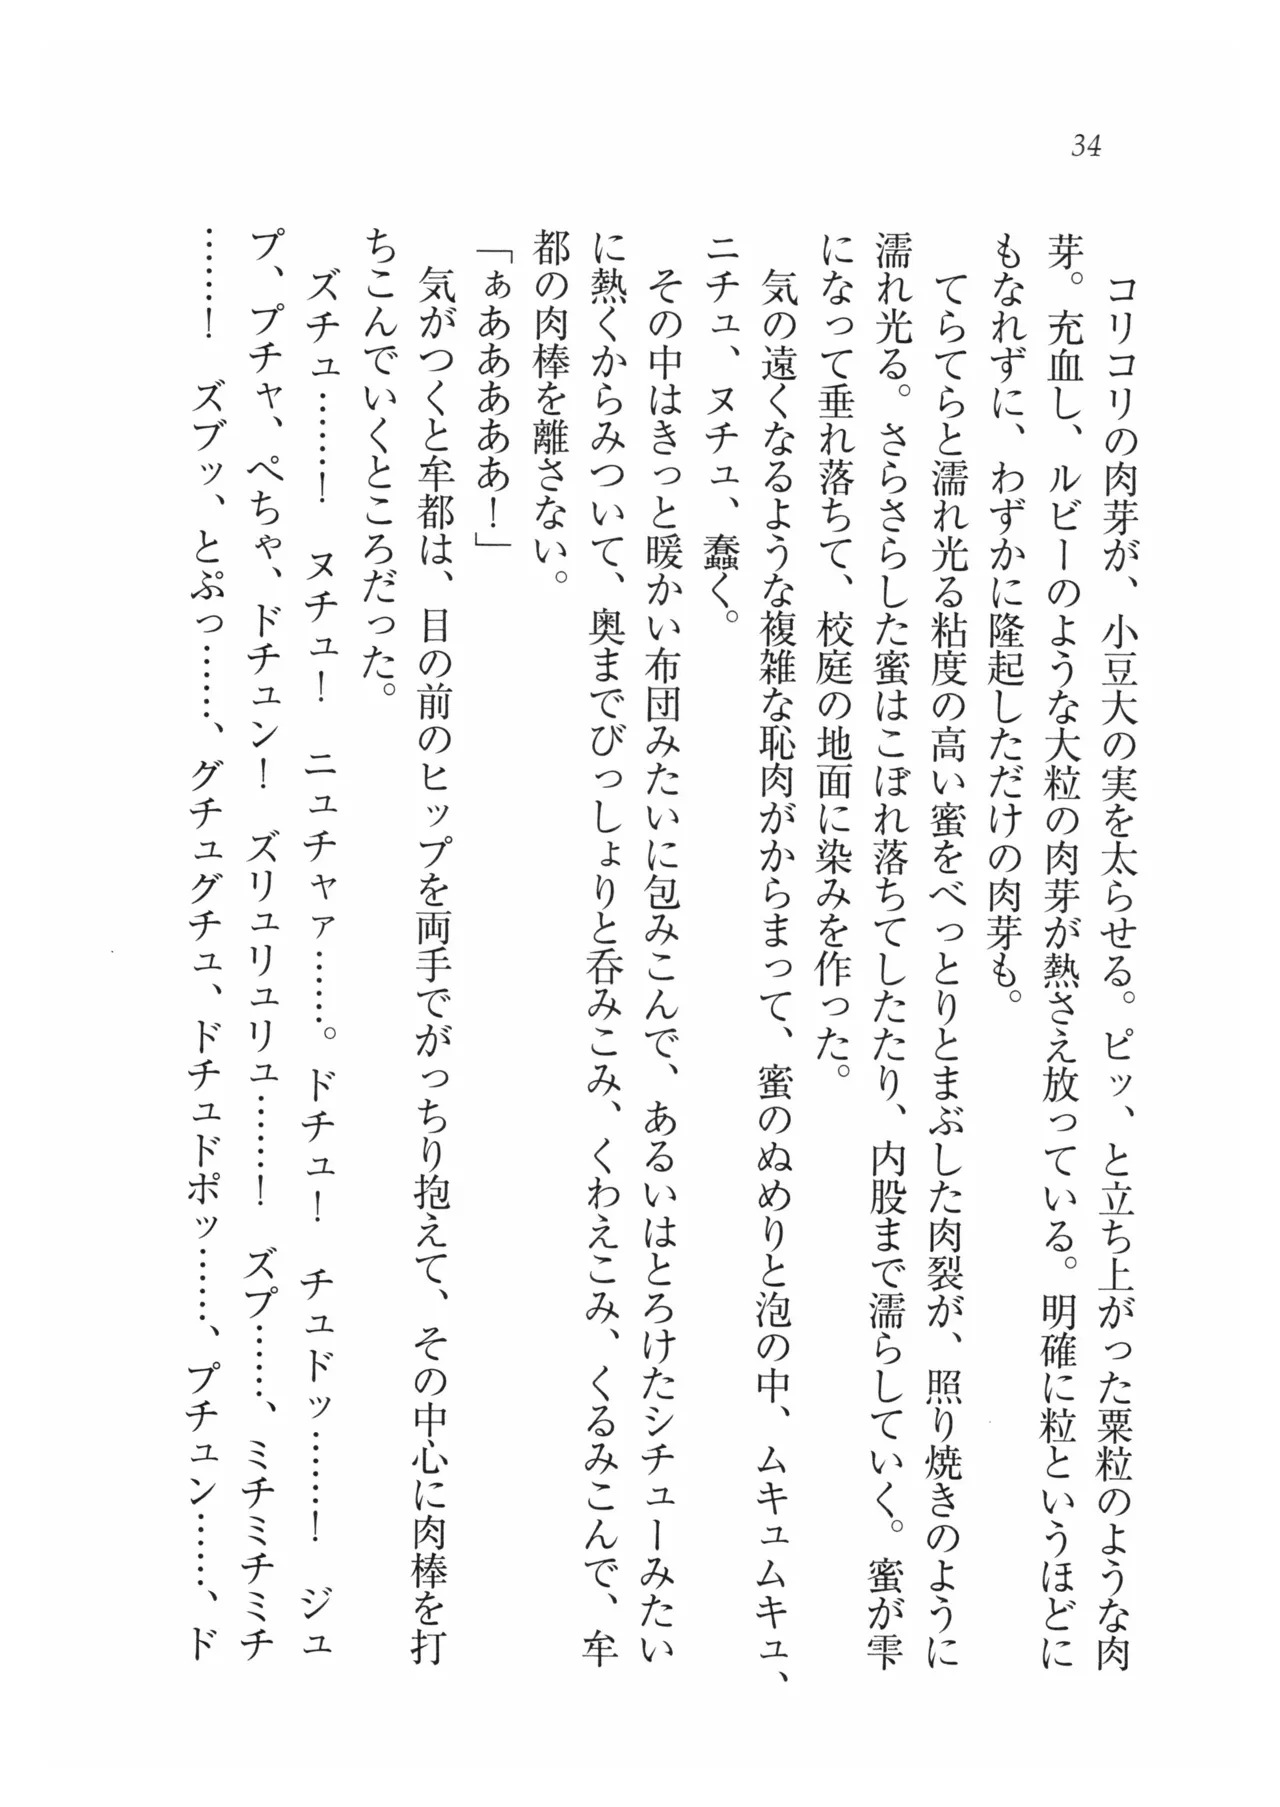 34
コリコリの肉芽が、小豆大の実を太らせる。ピッ、と立ち上がった粟粒のような肉
芽。充血し、ルビーのような大粒の肉芽が熱さえ放っている。明確に粒というほどに
もなれずに、わずかに隆起しただけの肉芽も。
てらてらと濡れ光る粘度の高い蜜をべっとりとまぶした肉裂が、照り焼きのように
濡れ光る。さらさらした蜜はこぼれ落ちてしたたり、内股まで濡らしていく。蜜が雫
になって垂れ落ちて、校庭の地面に染みを作った。
気の遠くなるような複雑な恥肉がからまって、蜜のぬめりと泡の中、ムキュムキュ、
ニチュ、ヌチュ、蠢く。
その中はきっと暖かい布団みたいに包みこんで、あるいはとろけたシチューみたい
に熱くからみついて、奥までびっしょりと呑みこみ、くわえこみ、くるみこんで、牟
都の肉棒を離さない。
「ぁあああああ！」
気がつくと牟都は、目の前のヒップを両手でがっちり抱えて、その中心に肉棒を打
ちこんでいくところだった。
ズチュ……！　ヌチュ！　ニュチャァ……。ドチュ！　チュドッ……！　ジュ
プ、プチャ、ぺちゃ、ドチュン！　ズリュリュリュ……！　ズプ……、ミチミチミチ
……！　ズブッ、とぷっ……、グチュグチュ、ドチュドポッ……、プチュン……、ド